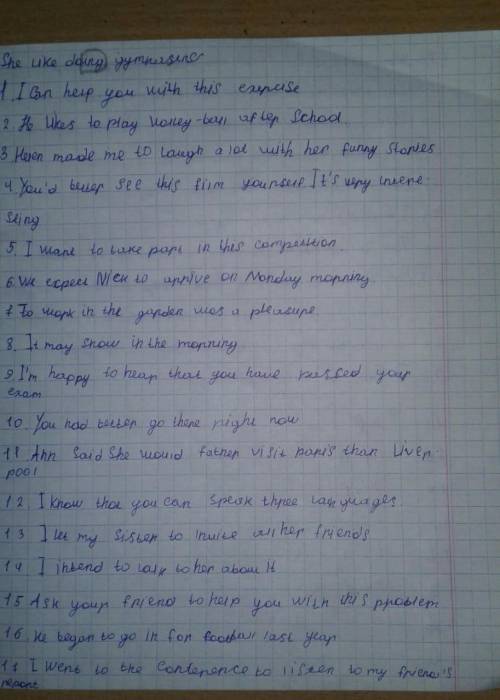 She like doing gymnasians
1. I can help you with this exercise
2. He likes to play volley-ball after school.
3 Helen made me to laugh a lot with her funny stories
4. You'd better see this film yourself It's very intere-
sting
5. I want to take part in this competition.
6. We expect Nick to arrive on Monday morning
7. To work in the garden was a pleasure.
8. It may snow in the morning
9. I'm happy to hear that you have passed your
exam
10. You had better go there right now
11 Ann said she would father visit paris than Liver-
pool
12. I know that you can speak three languages.
13 I let my sister to invite all her friends
14 I intend to talk to her about it
15 Ask your friend to help you with this problem
16 He began to go in for football last year
17 I went to the conference to listen to my friend's
report